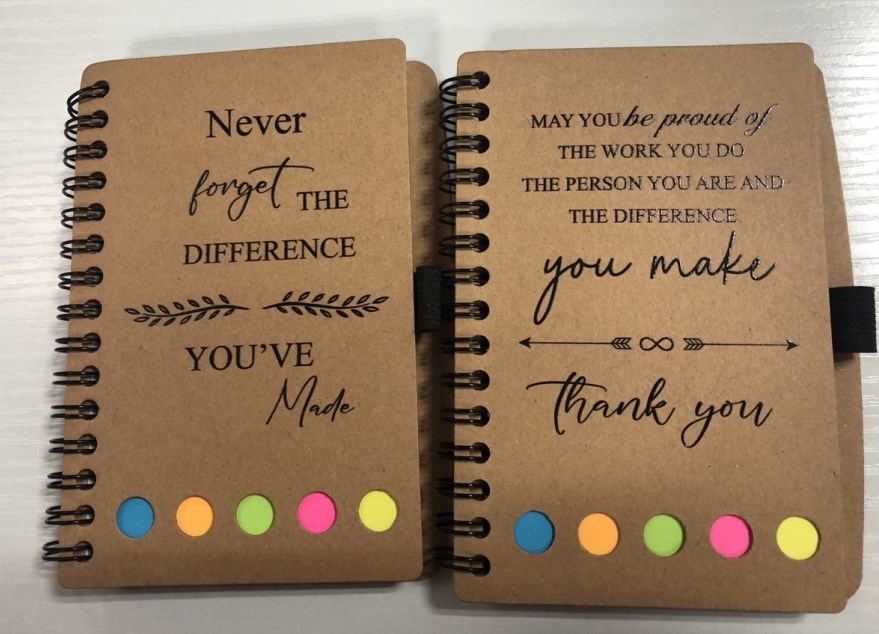 Never
forget THE
DIFFERENCE
YOU'VE
Made
MAY YOU be proud of
THE WORK YOU DO
THE PERSON YOU ARE AND
THE DIFFERENCE
you make
Thank you